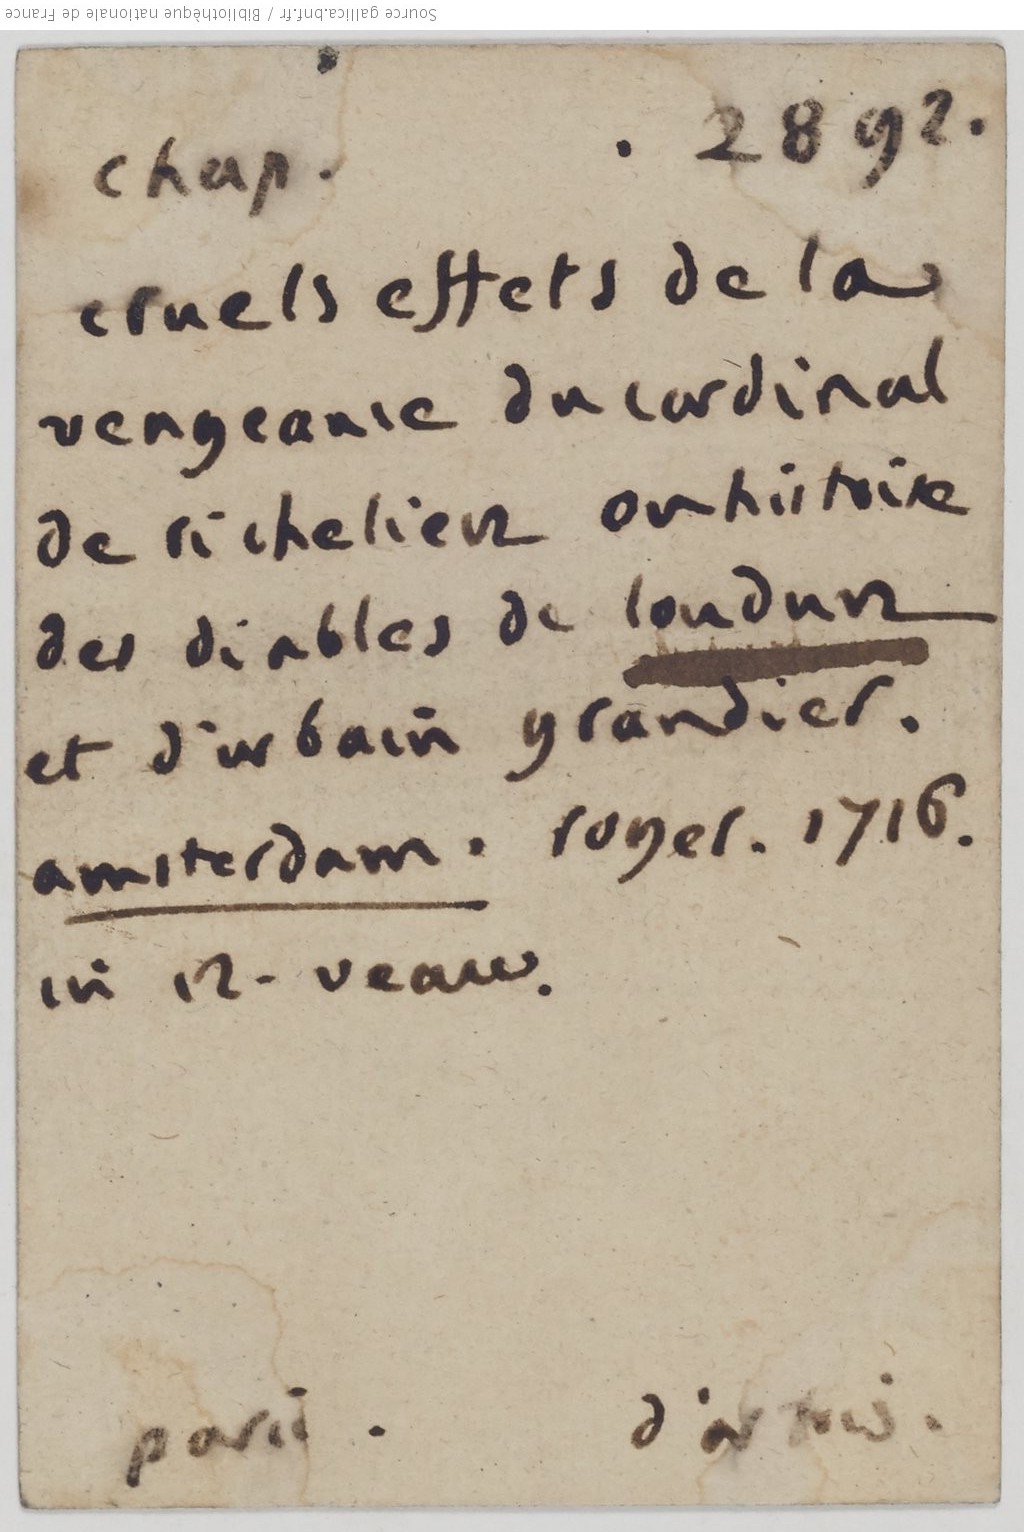 Source gallica.bnf.fr / Bibliothèque nationale de France
chap. . 2892.
cruels effets de la
vengeance du cardinal
de richelieu ou histoire
des diables de loudun
et d'urbain grandier.
amsterdam. royer. 1716.
in 12. veau.
paris . d'artois.